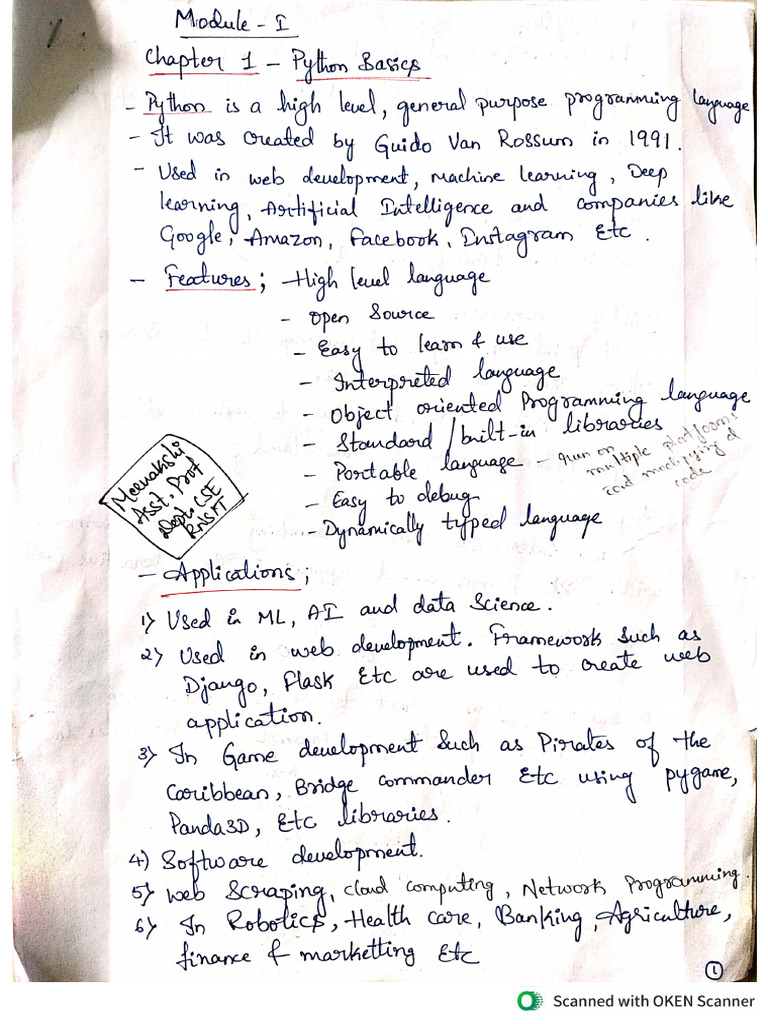 Module - I
Chapter 1 - Python Basics
- Python is a high level, general purpose programming language
- It was created by Guido Van Rossum in 1991.
- Used in web development, Machine learning, Deep
learning, Artificial Intelligence and companies like
Google, Amazon, Facebook, Instagram Etc.
- Features; - High level language
- Open Source
- Easy to learn & use
- Interpreted language
- Object oriented Programming language
- Standard / built-in libraries
- Portable language - run on
multiple platforms
and modifying of
code
- Easy to debug
- Dynamically typed language
Meenakshi
Asst. Prof
Dept. CSE
RNSIT
- Applications;
1) Used in ML, AI and data Science.
2) Used in web development. Framework such as
Django, Flask Etc are used to create web
application.
3) In Game development Such as Pirates of the
Caribbean, Bridge commander Etc using pygame,
Panda3D, Etc libraries.
4) Software development.
5) Web Scraping, cloud computing, Network Programming.
6) In Robotics, Health care, Banking, Agriculture,
finance & marketting Etc
1
Scanned with OKEN Scanner